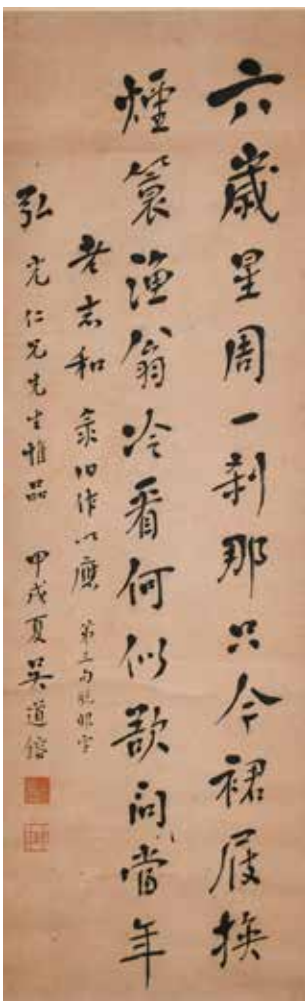 六歲星周一剎那只今裙屐換
煙簑漁翁冷看何似欵問當年
老志和 彔旧作以應 第三句脫眼字
弘光仁兄先生雅品 甲戌夏吳道鎔